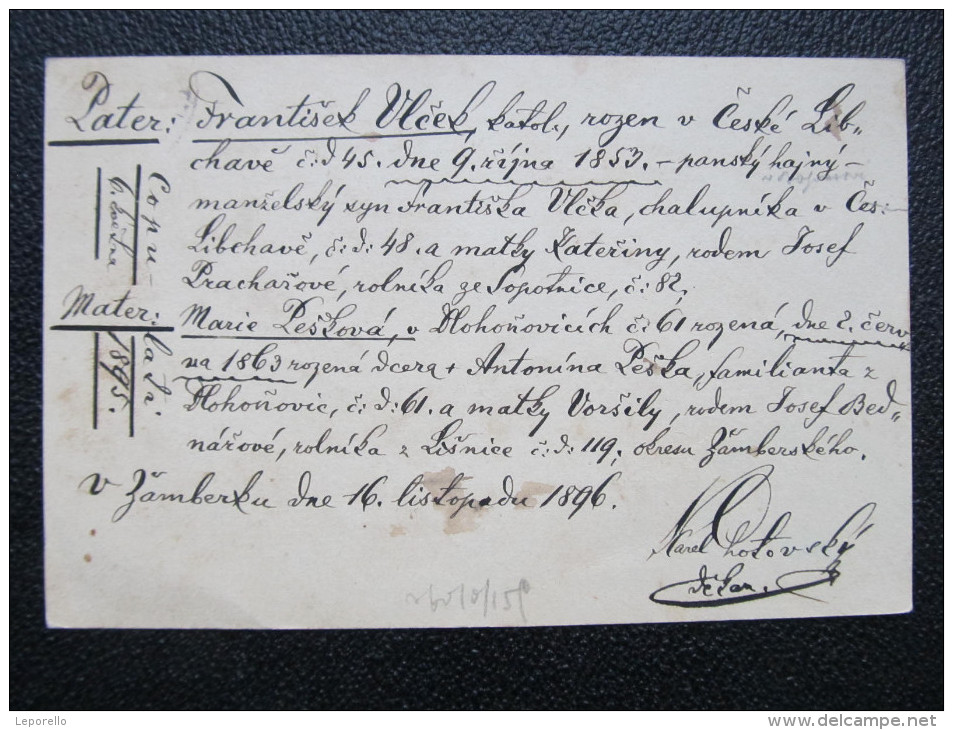 Pater: František Vlček, katol., rozen v České Lib„
chavě č: d 45. dne 9. října 1853. – panský hajný –
manželský syn Františka Vlčka, chalupníka v Čes:
Libchavě, č: d: 48. a matky Kateřiny, rodem Josef
Prachařové, rolníka ze Sopotnice, č: 82,
Mater: Marie Pešková, v Hlohoňovicích č: 61 rozená, dne 2. červ
na 1863 rozená dcera + Antonína Peška, familianta z
Hlohoňovic, č: d: 61. a matky Voršily, rodem Josef Bed„
nářové, rolníka z Lišnice č: d: 119, okresu Žamberského.
V Žamberku dne 16. listopadu 1896.
Karel Chotovský
děkan.
Copu-
lati.
6.
1895.
Leporello
www.delcampe.net